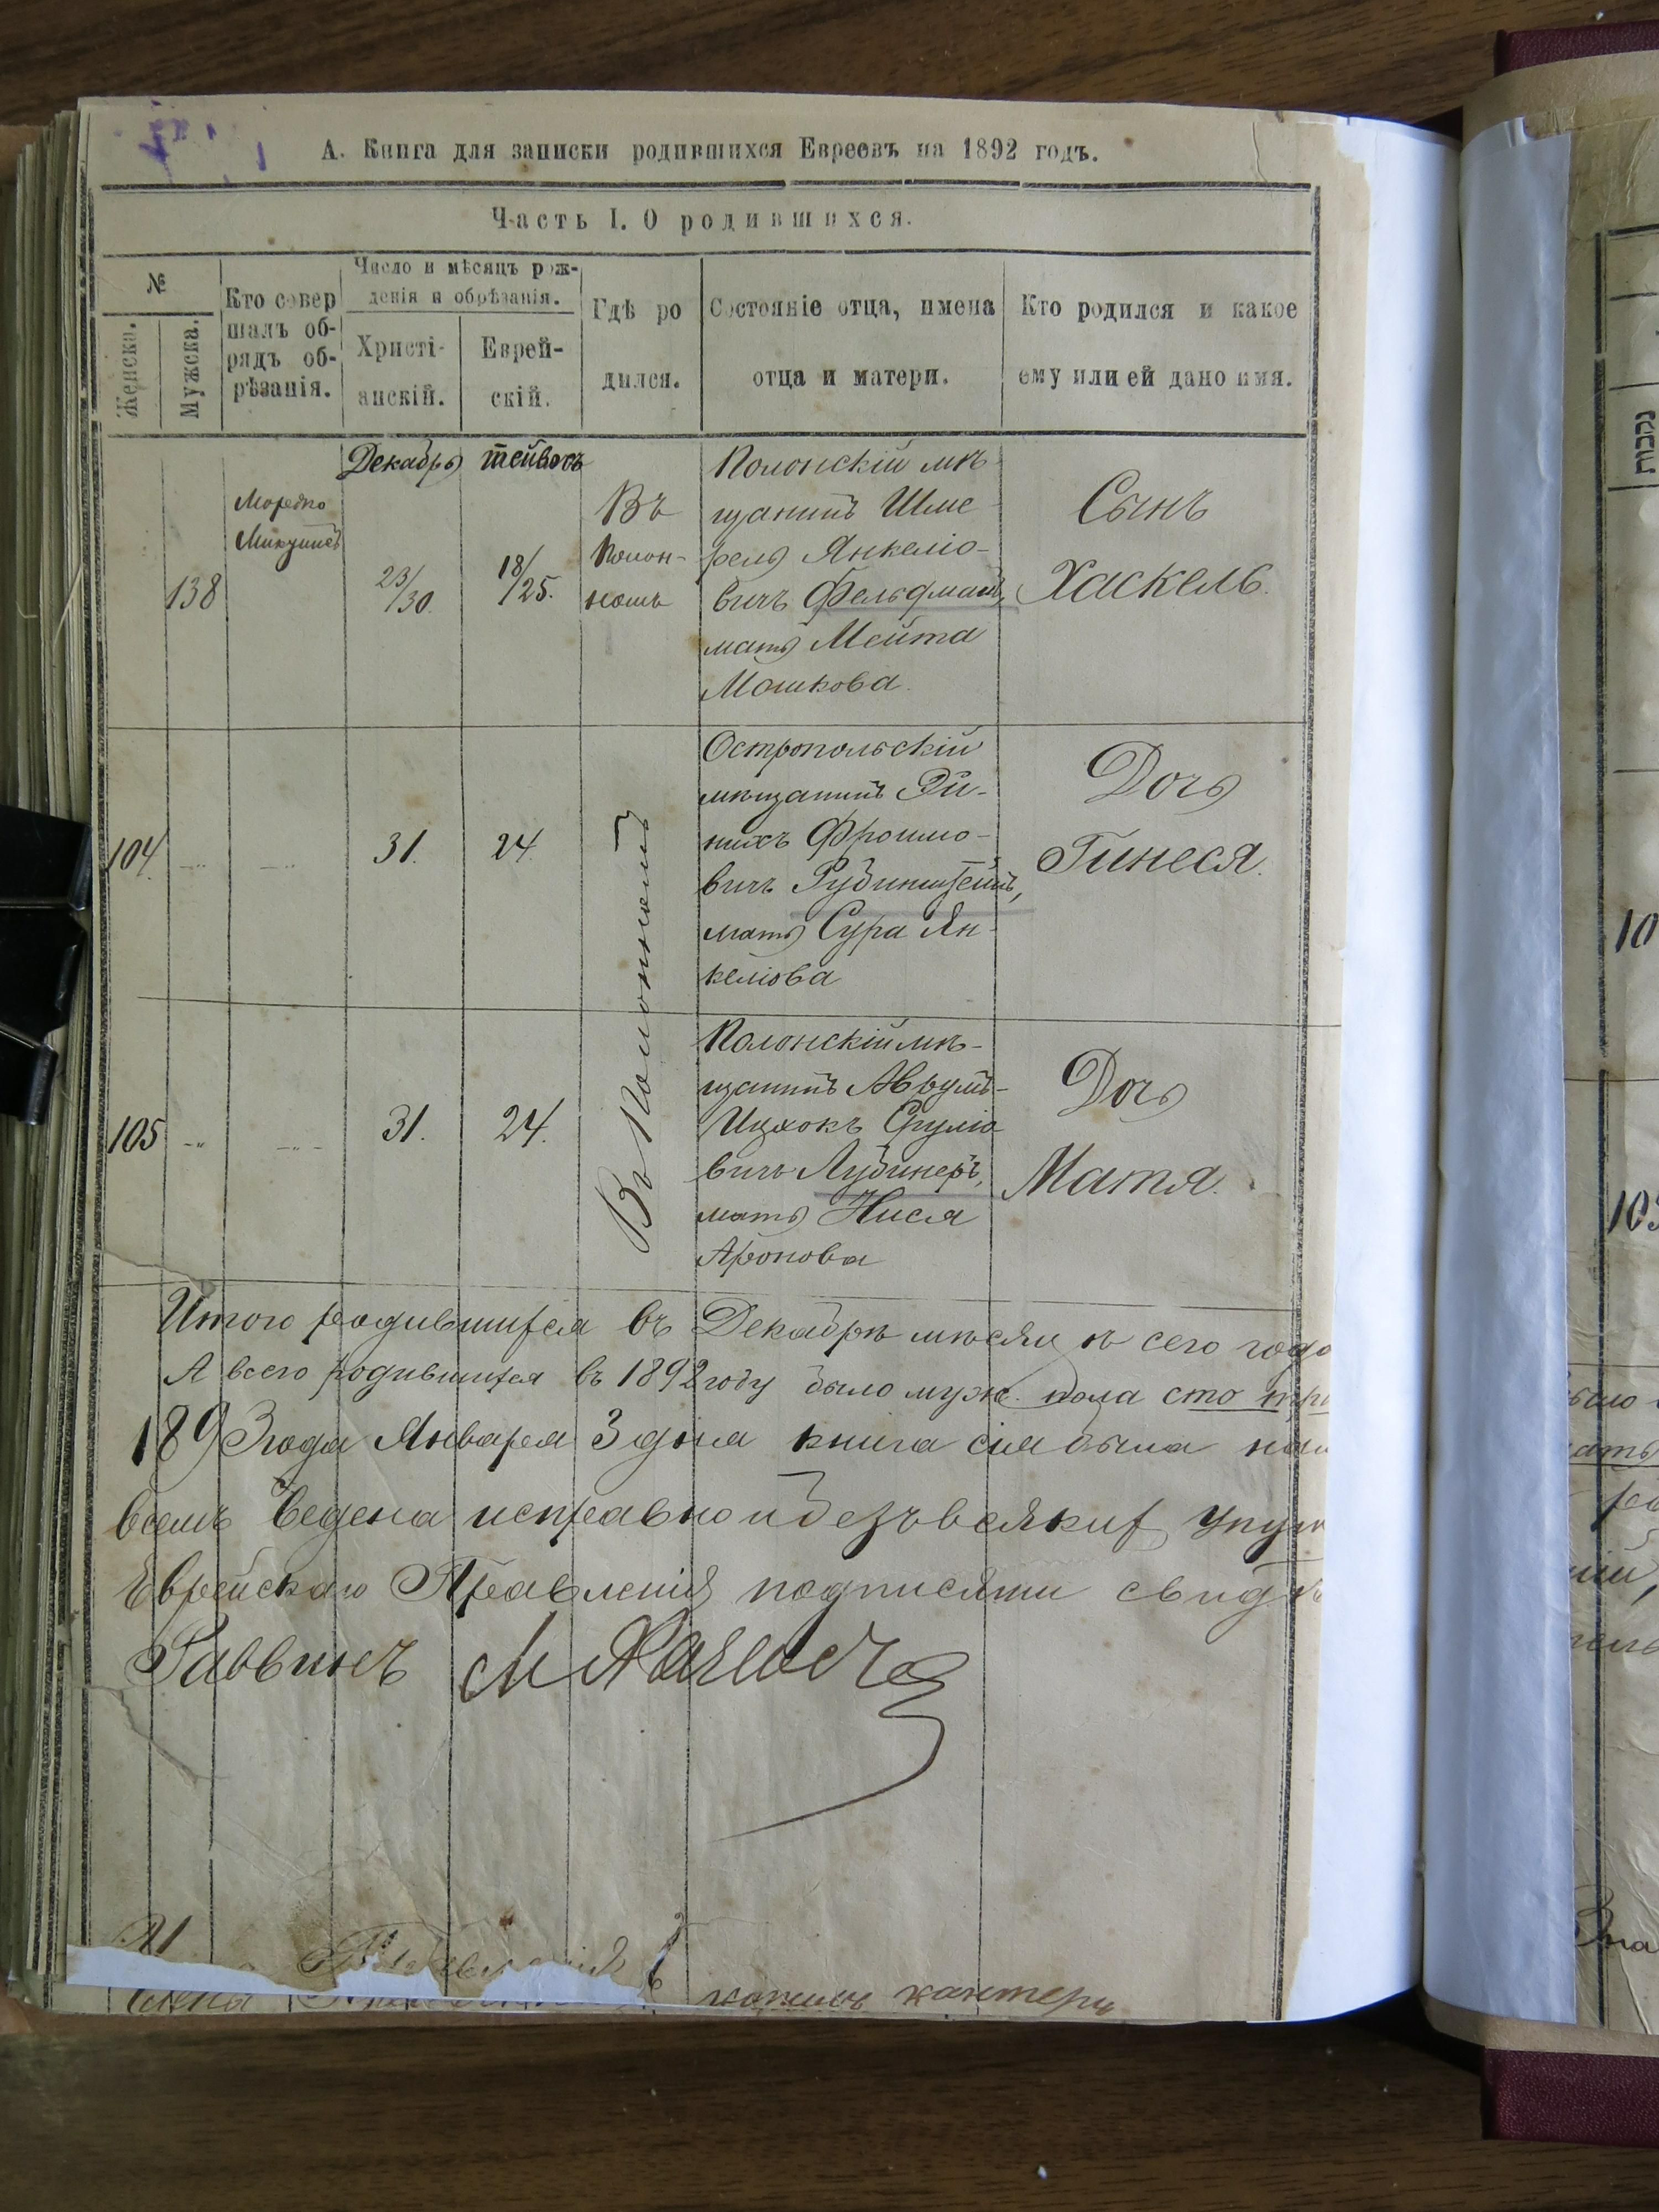 А. Книга для записки родившихся Евреевъ на 1892 годъ.
Часть I. О родившихся.
№
Женска.
Мужска.
Кто совер
шалъ об-
рядъ об-
рѣзанія.
Число и мѣсяцъ рож-
денія и обрѣзанія.
Христі-
анскій.
Еврей-
скій.
Гдѣ ро
дился.
Состояніе отца, имена
отца и матери.
Кто родился и какое
ему или ей дано имя.
138
Мордко
Декабрь
23/30.
тейвесъ
18/25.
Въ
Полон-
номъ
Полонскій мѣ-
щанинъ Шме-
рель Янкеліо-
вичъ Фельдманъ,
мать Мейта
Мошкова.
Сынъ
Хаскель.
104.
31.
24.
Въ Полонномъ
Остропольскій
мѣщанинъ Зй-
нихъ Фроимо-
вичъ Рубинштейнъ,
мать Сура Ян-
келіова
Дочь
Гинеся.
105
31.
24.
Полонскій мѣ-
щанинъ Авнумъ-
Ицхокъ Сруліо
вичъ Лубинеръ,
мать Нися
Аронова
Дочь
Матя.
Итого родившихся въ Декабрѣ мѣсяцѣ сего года
А всего родившихся въ 1892 году было муж. пола сто три
1893 года Января 3 дня книга сія была
всемъ ведена исправно и безъ всякихъ упущ
Еврейскаго Правленія подписями свидѣ
Раввинъ М
Члены
нахутъ кантеръ
10
נקבות